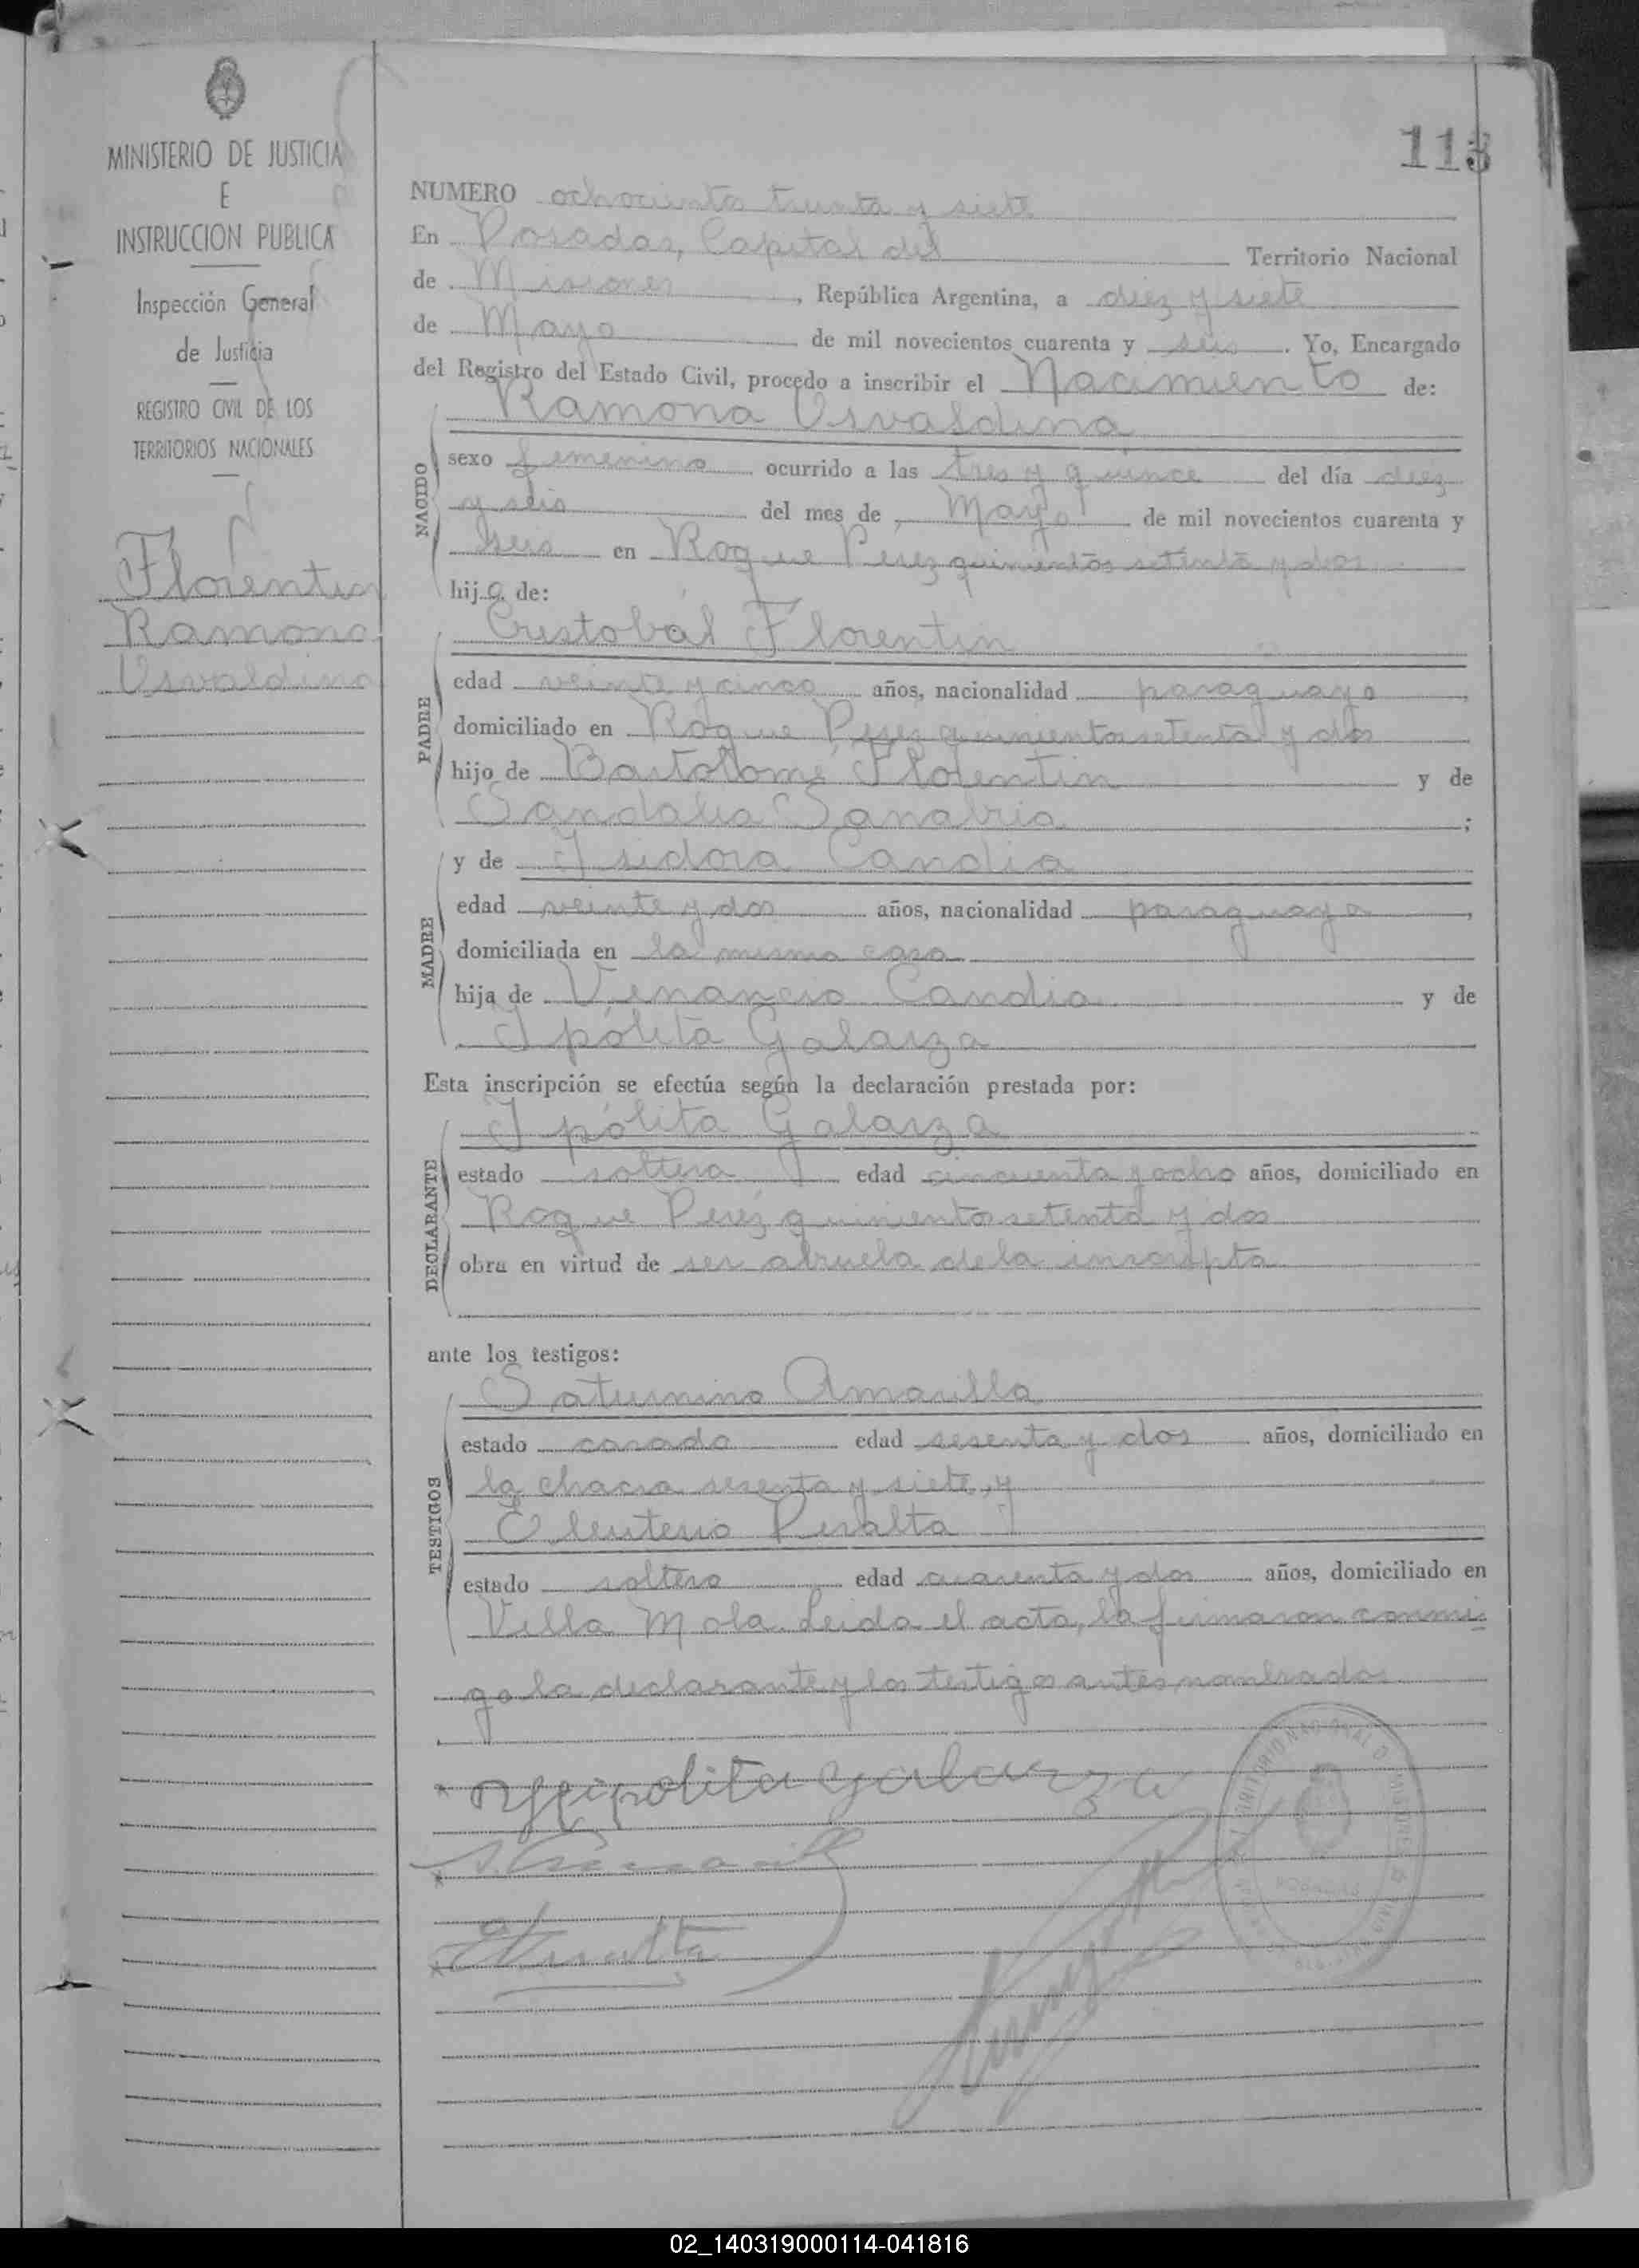 MINISTERIO DE JUSTICIA
E
INSTRUCCION PUBLICA
Inspección General
de Justicia
REGISTRO CIVIL DE LOS
TERRITORIOS NACIONALES
Florentin
Ramona
Osvaldina
113
NUMERO ochocientos treinta y siete
En Posadas, Capital del Territorio Nacional
de Misiones, República Argentina, a diez y siete
de Mayo de mil novecientos cuarenta y seis. Yo, Encargado
del Registro del Estado Civil, procedo a inscribir el Nacimiento de:
NACIDO
Ramona Osvaldina
sexo femenino ocurrido a las tres y quince del día diez
y seis del mes de Mayo de mil novecientos cuarenta y
seis en Roque Pérez quinientos setenta y dos
hija de:
PADRE
Cristobal Florentin
edad veinte y cinco años, nacionalidad paraguayo,
domiciliado en Roque Perez quinientos setenta y dos
hijo de Bartolomé Florentin y de
Sandalia Sanabria;
MADRE
y de Isidora Candia
edad veinte y dos años, nacionalidad paraguaya,
domiciliada en la misma casa
hija de Venancio Candia y de
Ipólita Galarza
Esta inscripción se efectúa según la declaración prestada por:
DECLARANTE
Ipólita Galarza
estado soltera edad cincuenta y ocho años, domiciliado en
Roque Pérez quinientos setenta y dos
obra en virtud de ser abuela de la inscripta
ante los testigos:
TESTIGOS
Saturnino Amarilla
estado casado edad sesenta y dos años, domiciliado en
la chacra sesenta y siete, y
Eleuterio Peralta
estado soltero edad cuarenta y dos años, domiciliado en
Villa Mola. Leida el acta, la firmaron conmi-
go la declarante y los testigos antes nombrados
Hipolita galarza
EPeralta
POSADAS
02_140319000114-041816